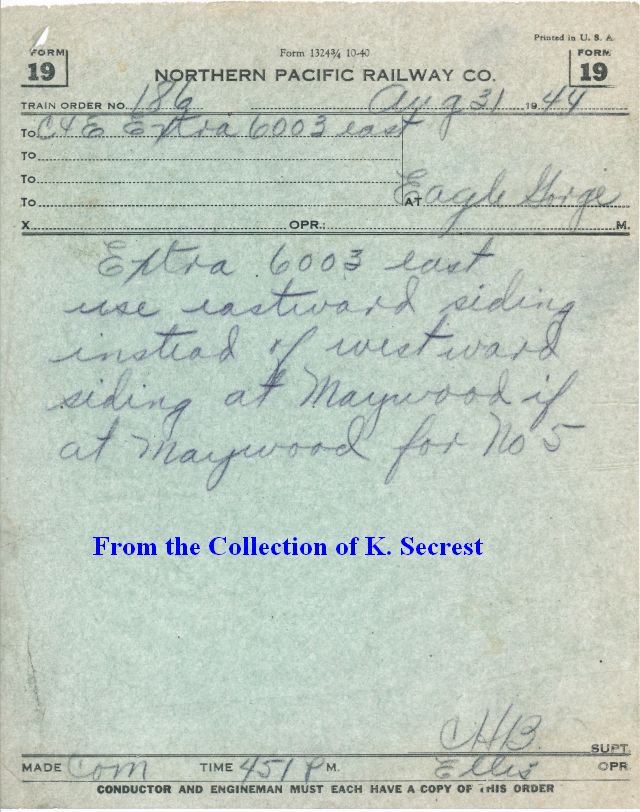 Printed in U. S. A.
FORM 19
Form 1324¾ 10-40
FORM 19
NORTHERN PACIFIC RAILWAY CO.
TRAIN ORDER NO. 186 Aug 31 1944
To C&E Extra 6003 east
To
To
To AT Eagle Gorge
X OPR.: M.
Extra 6003 east
use eastward siding
instead of westward
siding at Maywood if
at Maywood for No 5
From the Collection of K. Secrest
CHB. SUPT.
MADE Com TIME 451 P M. Ellis OPR
CONDUCTOR AND ENGINEMAN MUST EACH HAVE A COPY OF THIS ORDER